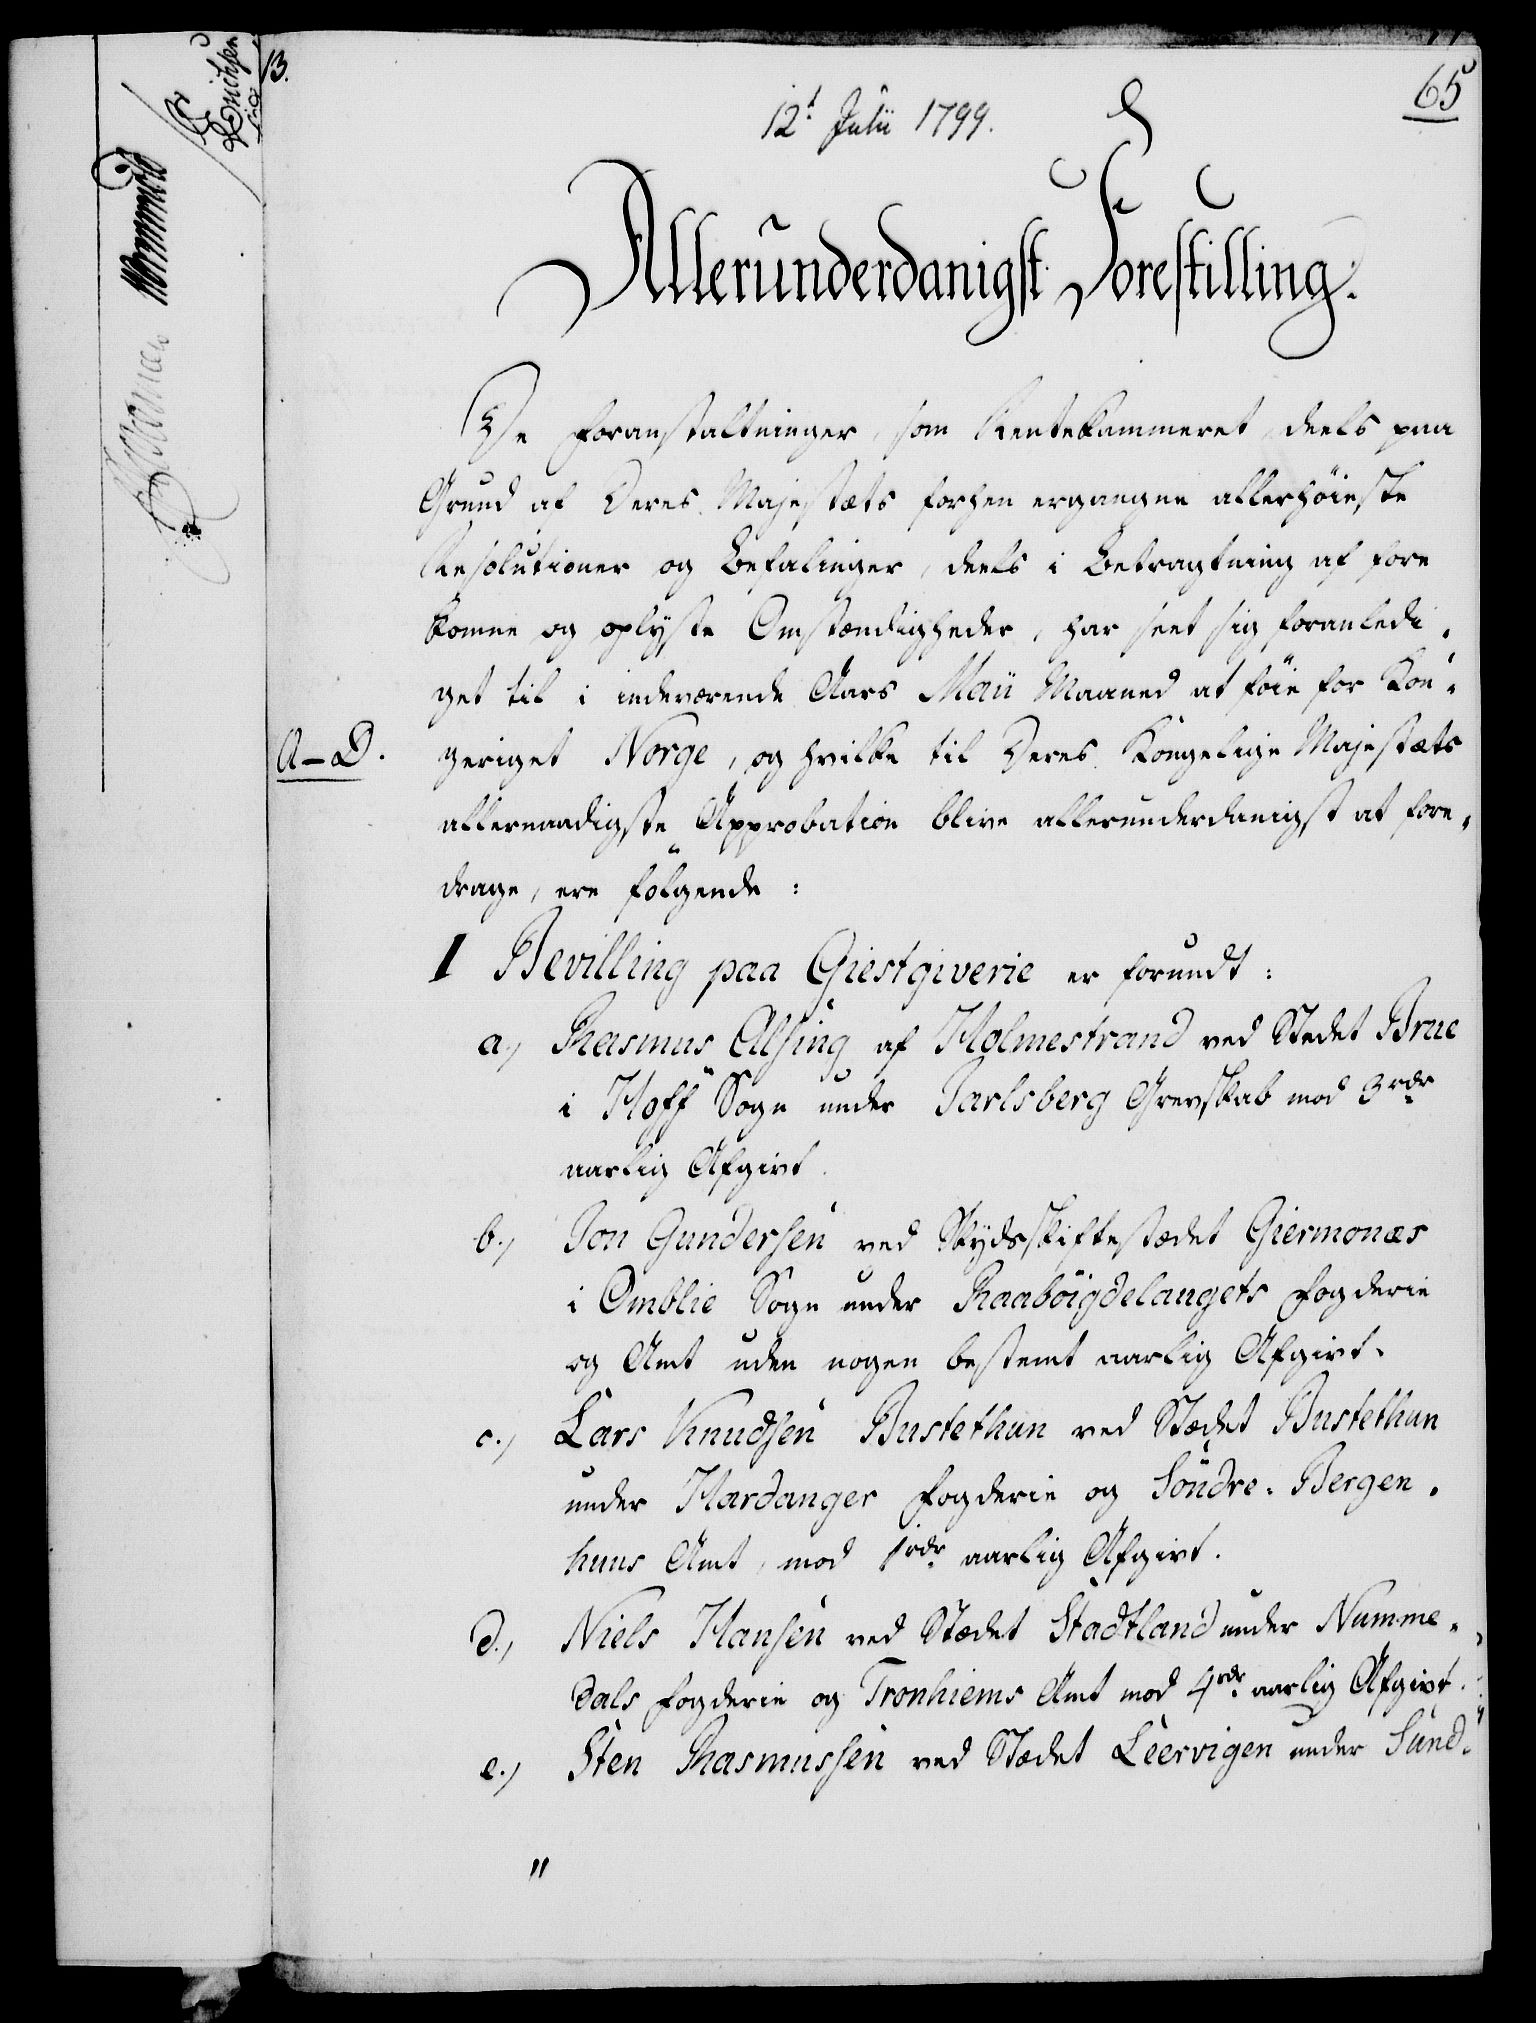 13.
65
12t Julii 1799.
Allerunderdanigst Forestilling.
De Foranstaltninger, som Rentekammeret, deels paa
Grund af Deres Majestæts forhen ergangne allerhöieste
Resolutioner og Befalinger, deels i Betragtning af fore
komne og oplyste Omstændigheder, har seet sig foranledi„
get til i indeværende Aars Maii Maaned at föie for Kon„
A-D. geriget Norge, og hvilke til Deres Kongelige Majestæts
allernaadigste Approbation blive allerunderdanigst at fore„
drage, ere fölgende:
1 Bevilling paa Giestgiverie er forundt:
a., Rasmus Alsing af Holmestrand ved Stedet Brue
i Hoff Sogn under Jarlsberg Grevskab mod 3 rdr
aarlig Afgivt.
b., Jon Gundersen ved Skydsskiftestædet Giermonæs
i Omblie Sogn under Raaböigdelaugets Fogderie
og Amt uden nogen bestemt aarlig Afgivt.
c., Lars Knudsen Bustethun ved Stædet Bustethun
under Hardanger Fogderie og Söndre-Bergen„
huus Amt, mod 1 rdr aarlig Afgivt.
d., Niels Hansen ved Stædet Stadtland under Numme„
dals Fogderie og Tronhiems Amt mod 4 rdr aarlig Afgivt.
e., Sten Rasmussen ved Stædet Leervigen under Sund„
"